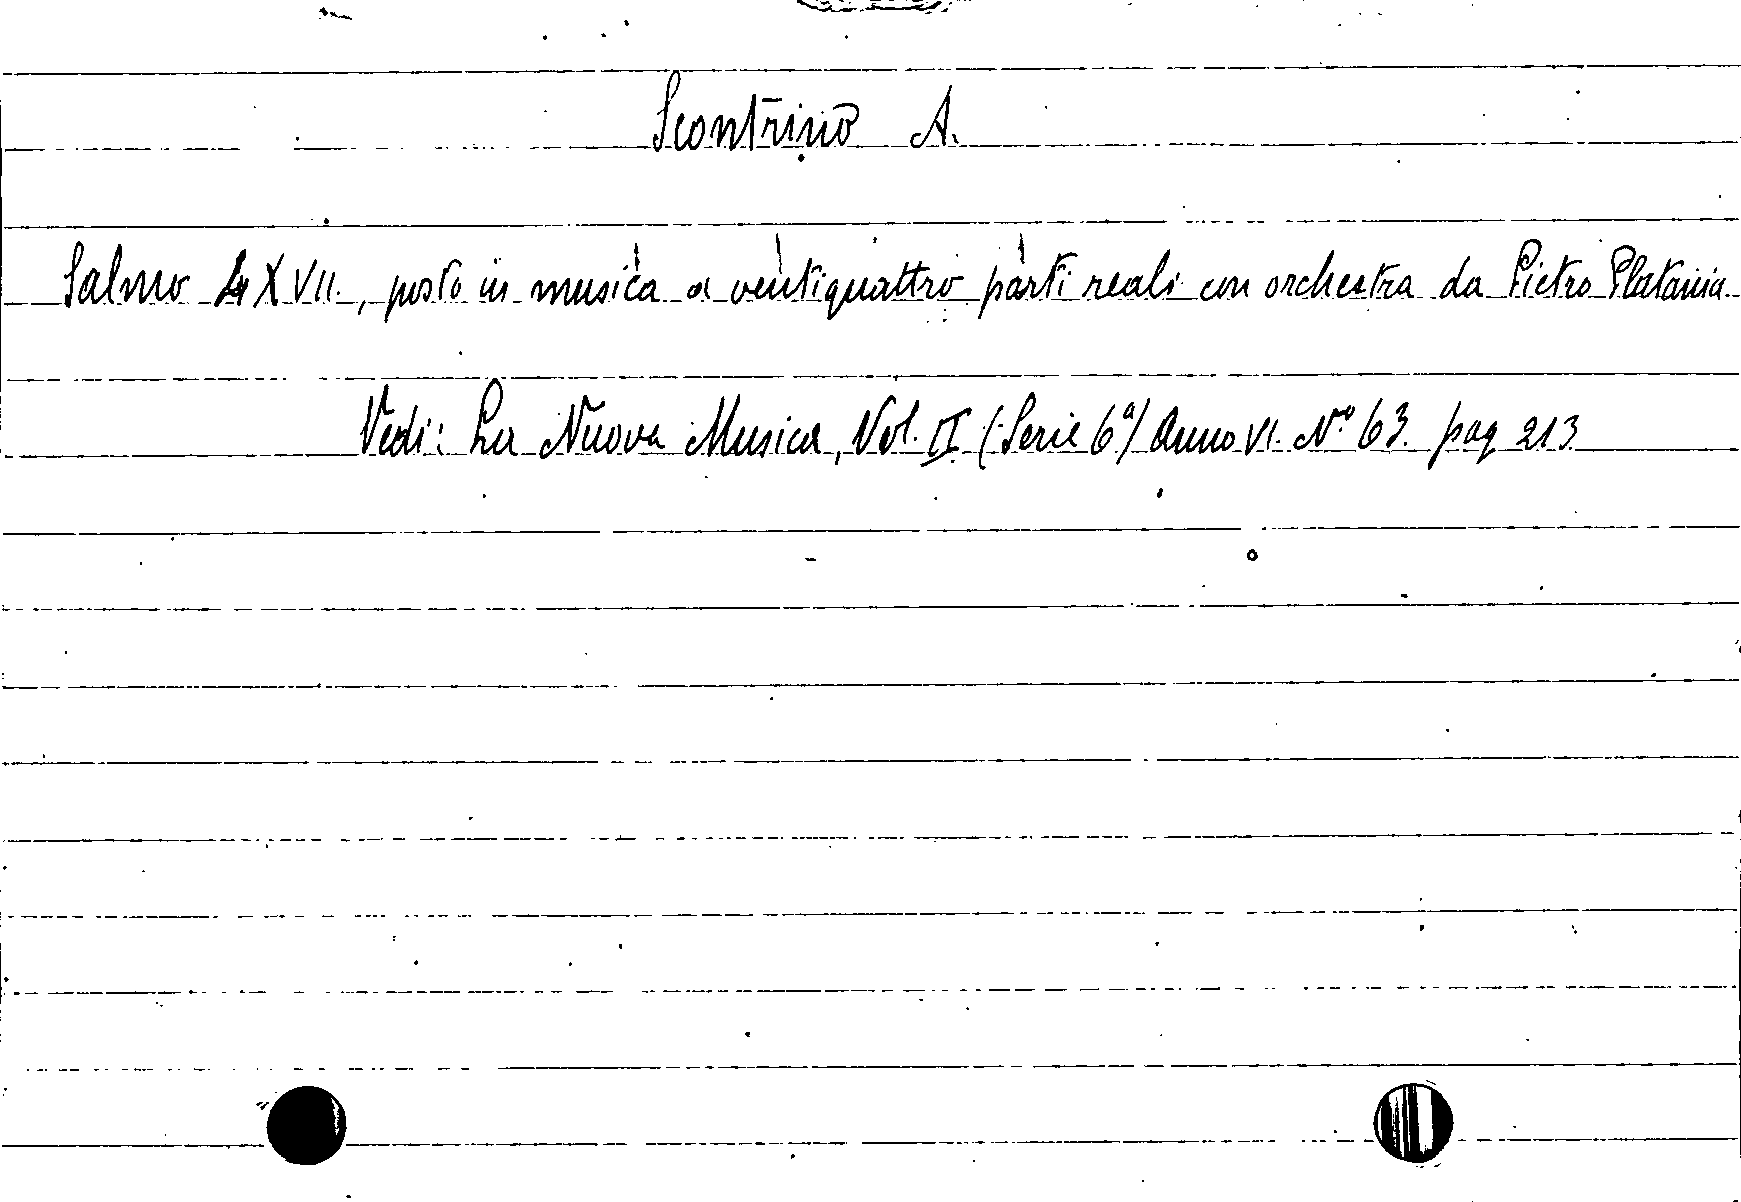 Scontrino A.
Salmo LXVII., posto in musica a ventiquattro parti reali con orchestra da Pietro Platania
Vedi: La Nuova Musica, Vol. II (Serie 6ª) Anno VI. Nº 63. pag 213